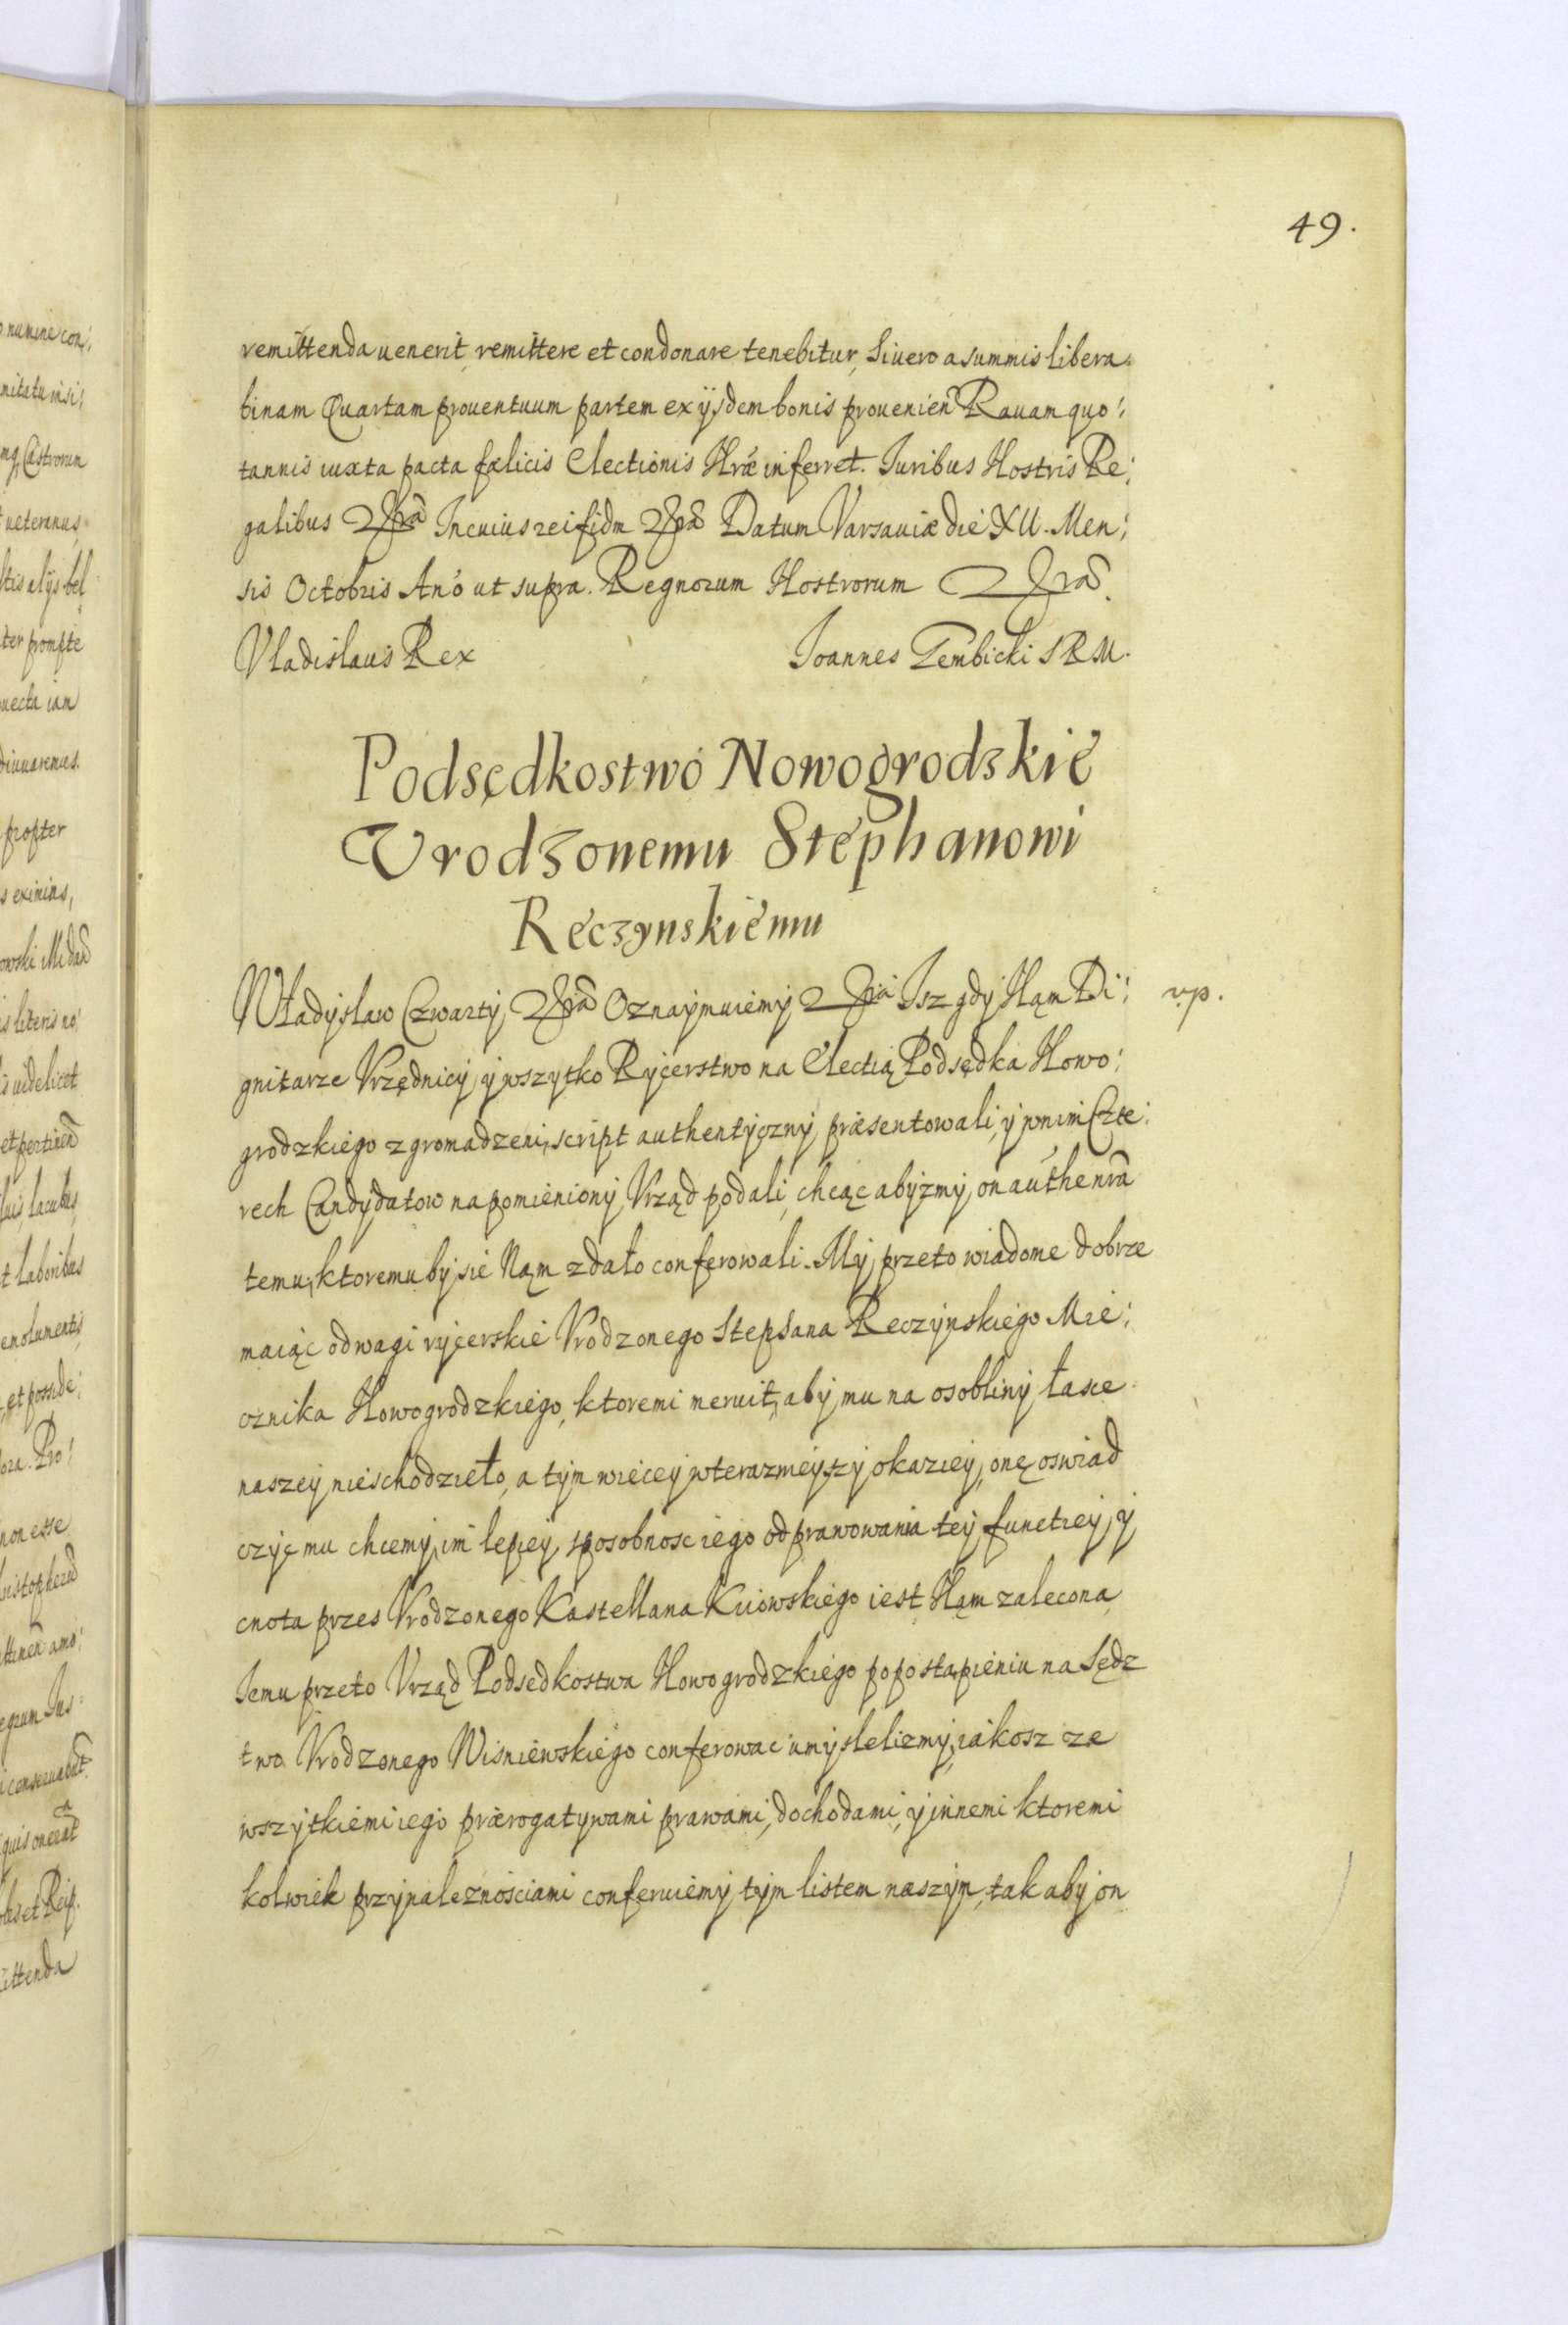 49.
remittenda uenerit, remittere et condonare tenebitur, Si uero a summis libera-
binam Quartam prouentuum partem ex ijsdem bonis prouenien Rauam quo:
tannis iuxta pacta fælicis Electionis Nræ inferret. Iuribus Nostris Re:
galibus Incuius rei fidm Datum Varsauiæ die XII. Men:
sis Octobris Anó ut supra. Regnorum Nostrorum
Vladislaus Rex Ioannes Gembicki S R M.
Podsędkostwo Nowogrodzkie
Vrodzonemu Stephanowi
Reczynskiemu
Władysław Czwarty Oznaymuiemy Isz gdy Nąm Di:
vp.
gnitarze Vrzędnicy, y wszytko Rycerstwo na Electią Podsędka Nowo:
grodzkiego zgromadzeni, script authentyczny præsentowali, y w nim Czte:
rech Candydatow na pomieniony Vrząd podali, chcąc abyzmy on authenra
temu, ktoremu by sie Nąm zdało conferowali. My przeto wiadome dobrze
maiąc odwagi rycerskie Vrodzonego Stephana Reczynskiego Mie:
cznika Nowogrodzkiego, ktoremi meruit, aby mu na osobliwy łasce
naszey nieschodzieło, a tym więcey w terazmeyszy okaziey, onę oswiad
czyc mu chcemy, im lepiey sposobnosc iego odprawowania tey functiey, y
cnota przes Vrodzonego Kastellana Kiiowskiego iest Nąm zalecona
Iemu przeto Vrząd Podsedkostwa Nowogrodzkiego po postąpieniu na Sędz
two Vrodzonego Wisniewskiego conferowac umyslelizmy, iakosz ze
wszytkiemi iego prærogatywami prawami, dochodami, y innemi ktoremi
kolwiek przynaleznosciami conferuiemy tym listem naszym, tak aby on